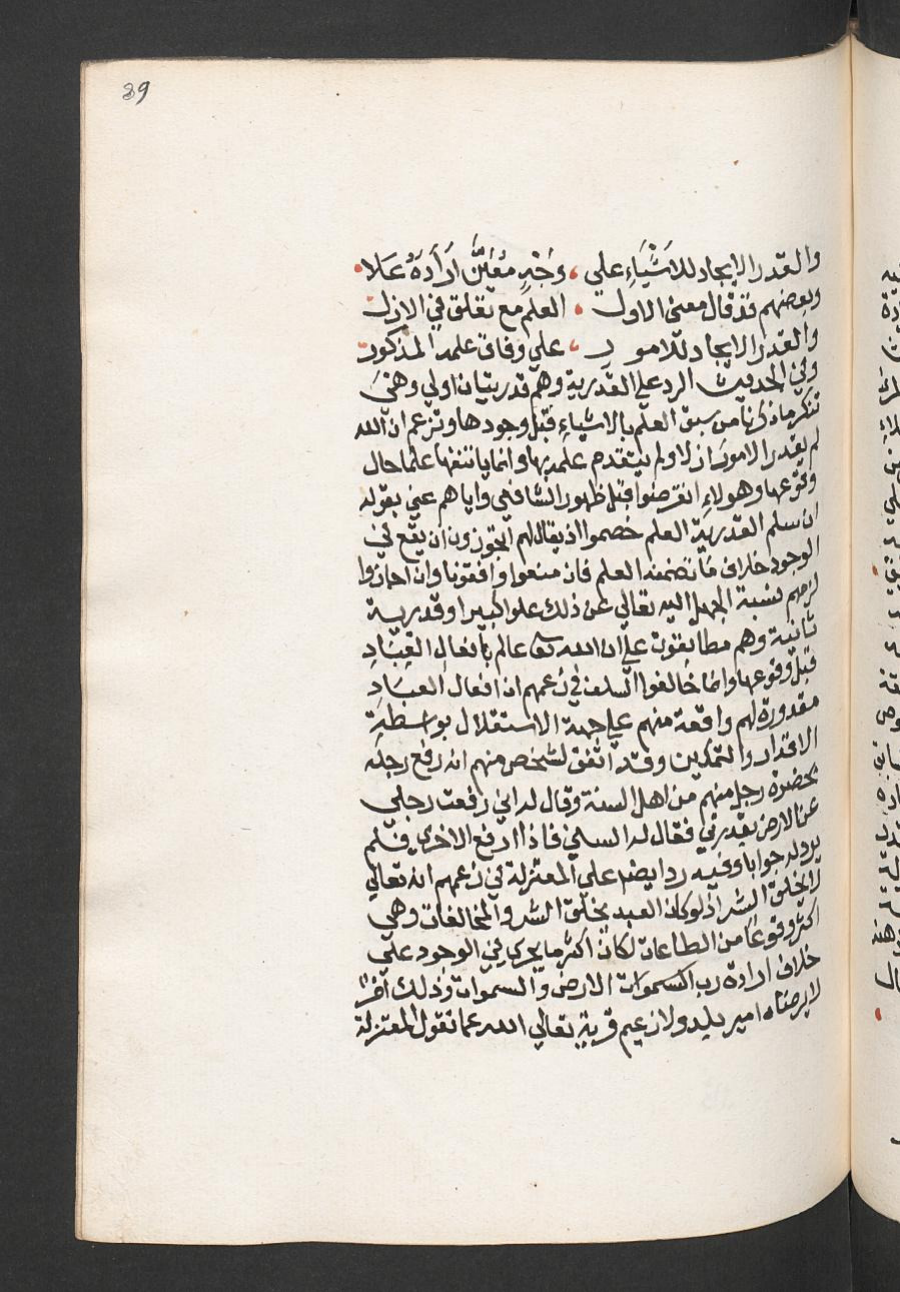 89
والقدر الايجاد للاشياء علي ، وجه معين اراده علا
وبعضهم قد قال معني الاول . العلم مع تعلق في الازل
والقدر الايجاد للامور ، علي وفاق علمه المذكور
وفي الحديث الرد علي القدرية وهم قدريتان اولي وهي
تنكر ما ذكرنا من سبق العلم بالاشياء قبل وجودها وتزعم ان الله
لم يقدر الامور ازلا ولم يتقدم علمه بها وانما ياتنفها علما حال
وقوعها وهولاء انقرضوا قبل ظهور الشافعي واياهم عني بقوله
ان سلم القدرية العلم خصموا اذ يقال لهم اتجوزون ان يقع في
الوجود خلاف ما تضمنه العلم فان منعوا وافقونا وان اجازوا
لزمهم نسبة الجهل اليه تعالي عن ذلك علوا كبيرا وقدرية
ثانية وهم مطابقون علي ان الله تعا عالم بافعال العباد
قبل وقوعها وانما خالفوا السلف في زعمهم ان افعال العباد
مقدورة لهم واقعة منهم علي جهة الاستقلال بواسطة
الاقدار والتمكين وقد اتفق لشخص منهم انه رفع رجله
بحضرة رجل منهم من اهل السنة وقال له اني رفعت رجلي
عن الارض بقدرتي فقال له السني فاذا ارفع الاخري فلم
يرد له جوابا وفيه رد ايضا علي المعتزلة في زعمهم انه تعالي
لا يخلق الشر اذ لو كان العبد يخلق الشر والمخالفات وهي
اكثر وقوعا من الطاعات لكان اكثر ما يجري في الوجود علي
خلاف ارادة رب السموات الارض والسموات وذلك امر
لا يرضاه امير بلد ولا زعيم قرية تعالي الله عما تقول المعتزلة